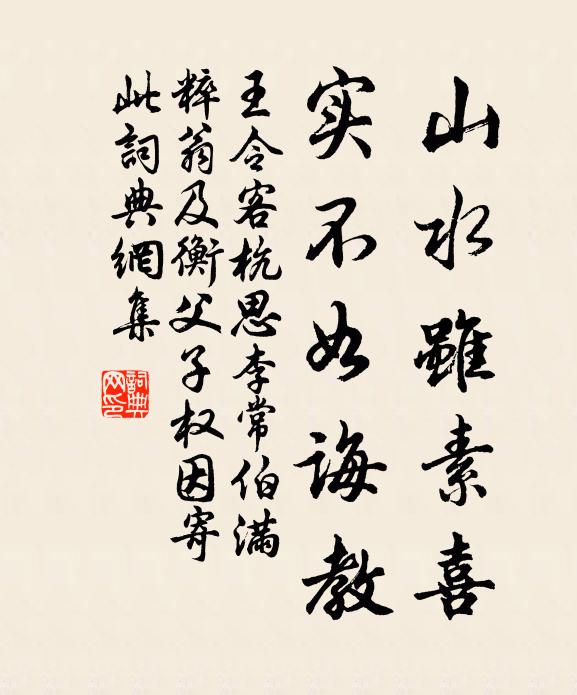 山水雖素喜
实不如诲教
王令客杭思李常伯满
粹翁及衡父子权因寄
此詞典網集
詞典
网印